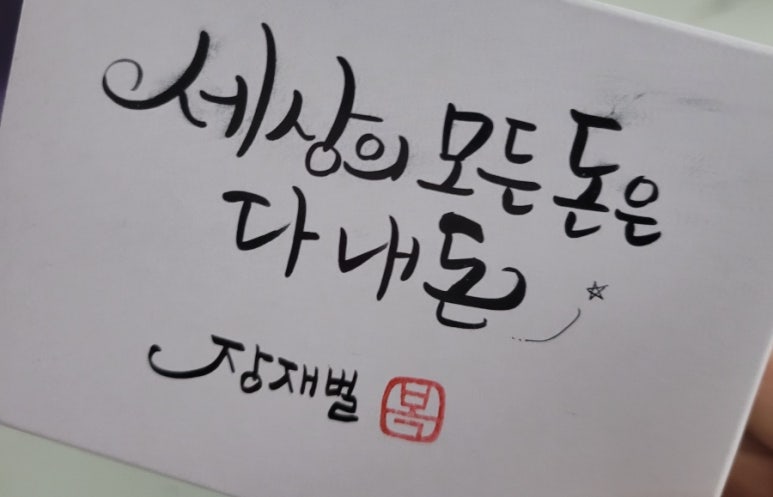 세상의 모든 돈은
다 내 돈
장재벌 복